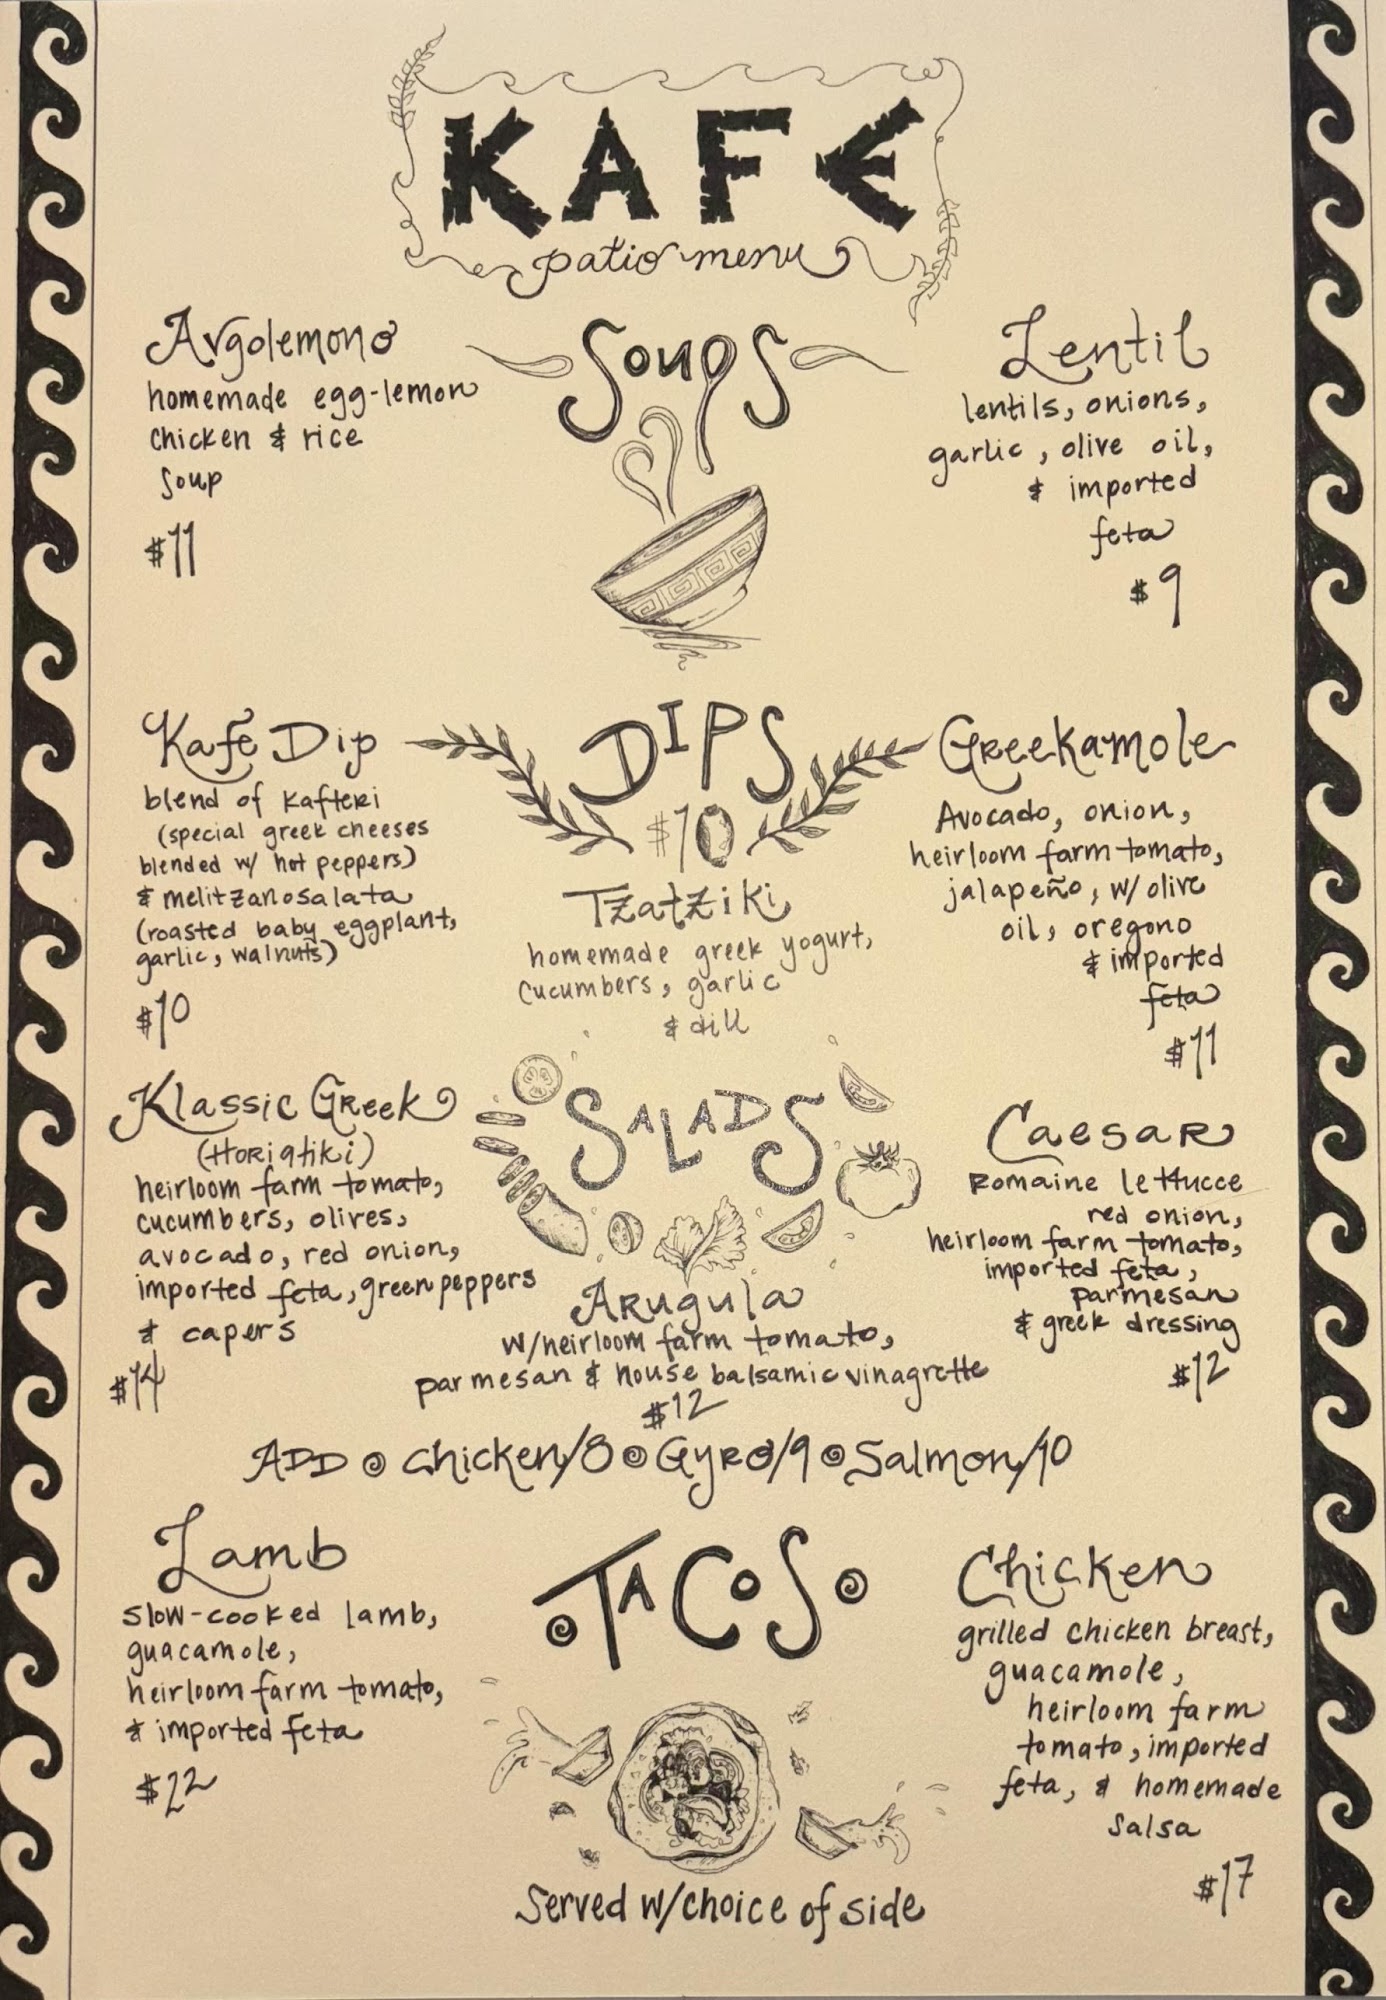 KAFE
patio menu
Soups
Avgolemono
homemade egg-lemon
chicken & rice
soup
$11
Lentil
lentils, onions,
garlic, olive oil,
& imported
feta
$9
DIPS
Kafe Dip
blend of Kafteri
(special greek cheeses
blended w/ hot peppers)
& melitzanosalata
(roasted baby eggplant,
garlic, walnuts)
$10
$10
Tzatziki
homemade greek yogurt,
cucumbers, garlic
& dill
Greekamole
Avocado, onion,
heirloom farm tomato,
jalapeño, w/ olive
oil, oregono
& imported
feta
$11
SALADS
Klassic Greek
(Horiatiki)
heirloom farm tomato,
cucumbers, olives,
avocado, red onion,
imported feta, green peppers
& capers
$14
Arugula
w/heirloom farm tomato,
parmesan & house balsamic vinagrette
$12
Caesar
Romaine lettucce
red onion,
heirloom farm tomato,
imported feta,
parmesan
& greek dressing
$12
ADD Chicken/8 Gyro/9 Salmon/10
TACOS
Lamb
slow-cooked lamb,
guacamole,
heirloom farm tomato,
& imported feta
$22
Chicken
grilled chicken breast,
guacamole,
heirloom farm
tomato, imported
feta, & homemade
salsa
$17
Served w/choice of side